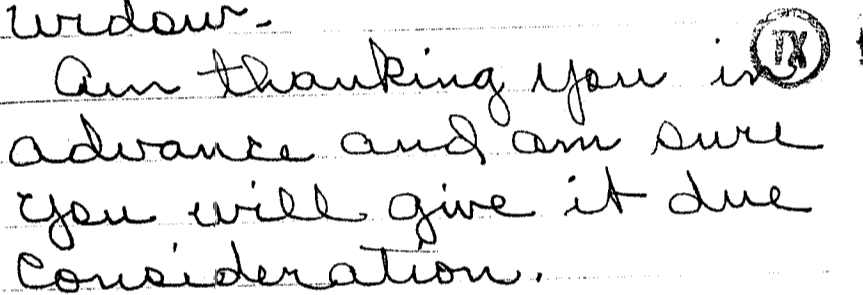 widow-
Am thanking you in
TX
advance and am sure
you will give it due
consideration.